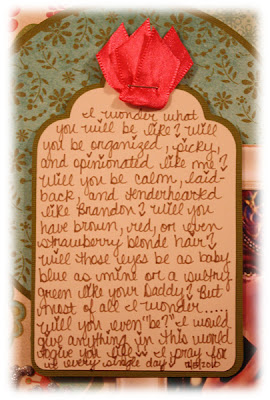 I wonder what
you will be like? Will
you be organized, picky,
and opinionated like me?
Will you be calm, laid-
back, and tenderhearted
like Brandon? Will you
have brown, red, or even
strawberry blonde hair?
Will those eyes be as baby
blue as mine or a
green like your Daddy? But
most of all I wonder.....
Will you even "be?" I would
give anything in this world
you I pray for
it every single day!